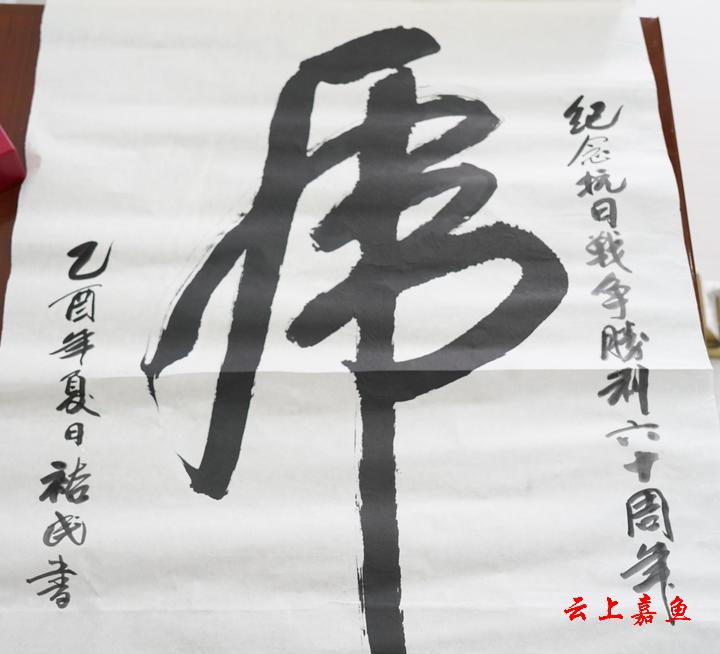 纪念抗日戰争勝利六十周年
虎
乙酉年夏日祜民書
云上嘉鱼